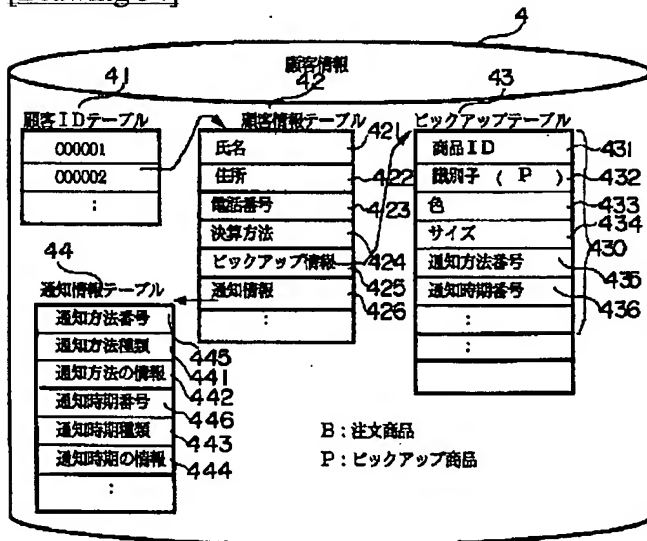 4
顧客情報
41
42
43
顧客IDテーブル
000001
000002
:
顧客情報テーブル
氏名
421
住所
422
電話番号
423
決算方法
424
ピックアップ情報
425
通知情報
426
:
ピックアップテーブル
商品ID
431
識別子 ( P )
432
色
433
サイズ
434
430
通知方法番号
435
通知時期番号
436
:
:
44
通知情報テーブル
通知方法番号
445
通知方法種類
441
通知方法の情報
442
通知時期番号
446
通知時期種類
443
通知時期の情報
444
:
B:注文商品
P:ピックアップ商品